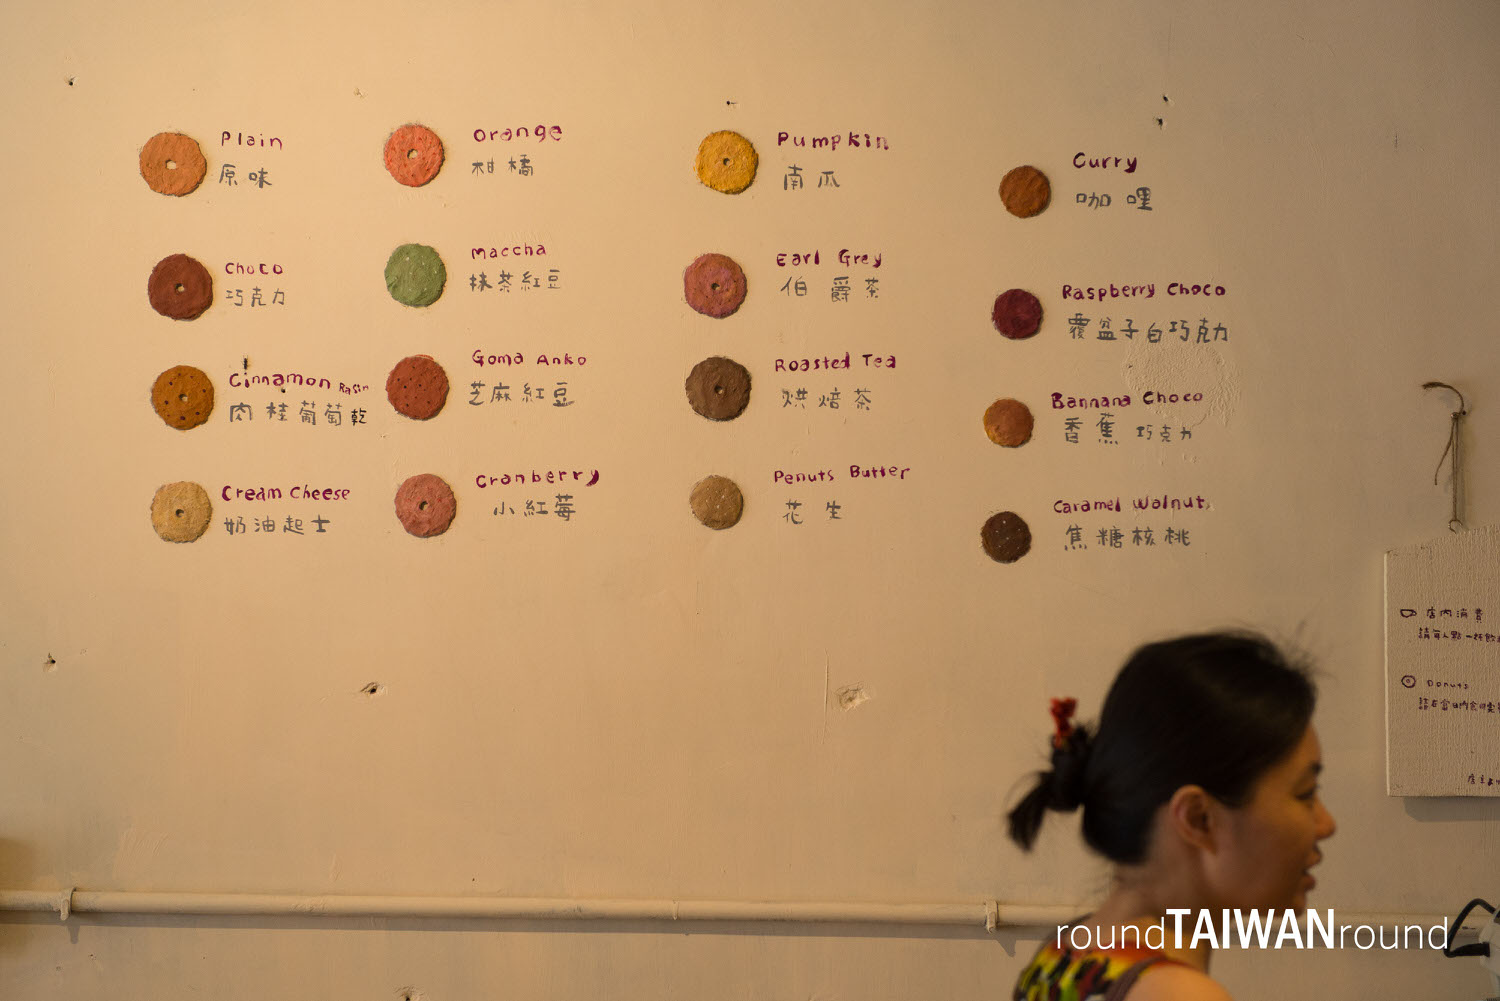 Plain
原味
Choco
巧克力
Cinnamon Rasin
肉桂葡萄乾
Cream Cheese
奶油起士
orange
柑橘
Maccha
抹茶紅豆
Goma Anko
芝麻紅豆
Cranberry
小紅莓
Pumpkin
南瓜
Earl Grey
伯爵茶
Roasted Tea
烘焙茶
Penuts Butter
花生
Curry
咖哩
Raspberry Choco
覆盆子白巧克力
Bannana Choco
香蕉巧克力
Caramel Walnut
焦糖核桃
店內消費
請每人點一杯飲
Donuts
roundTAIWANround